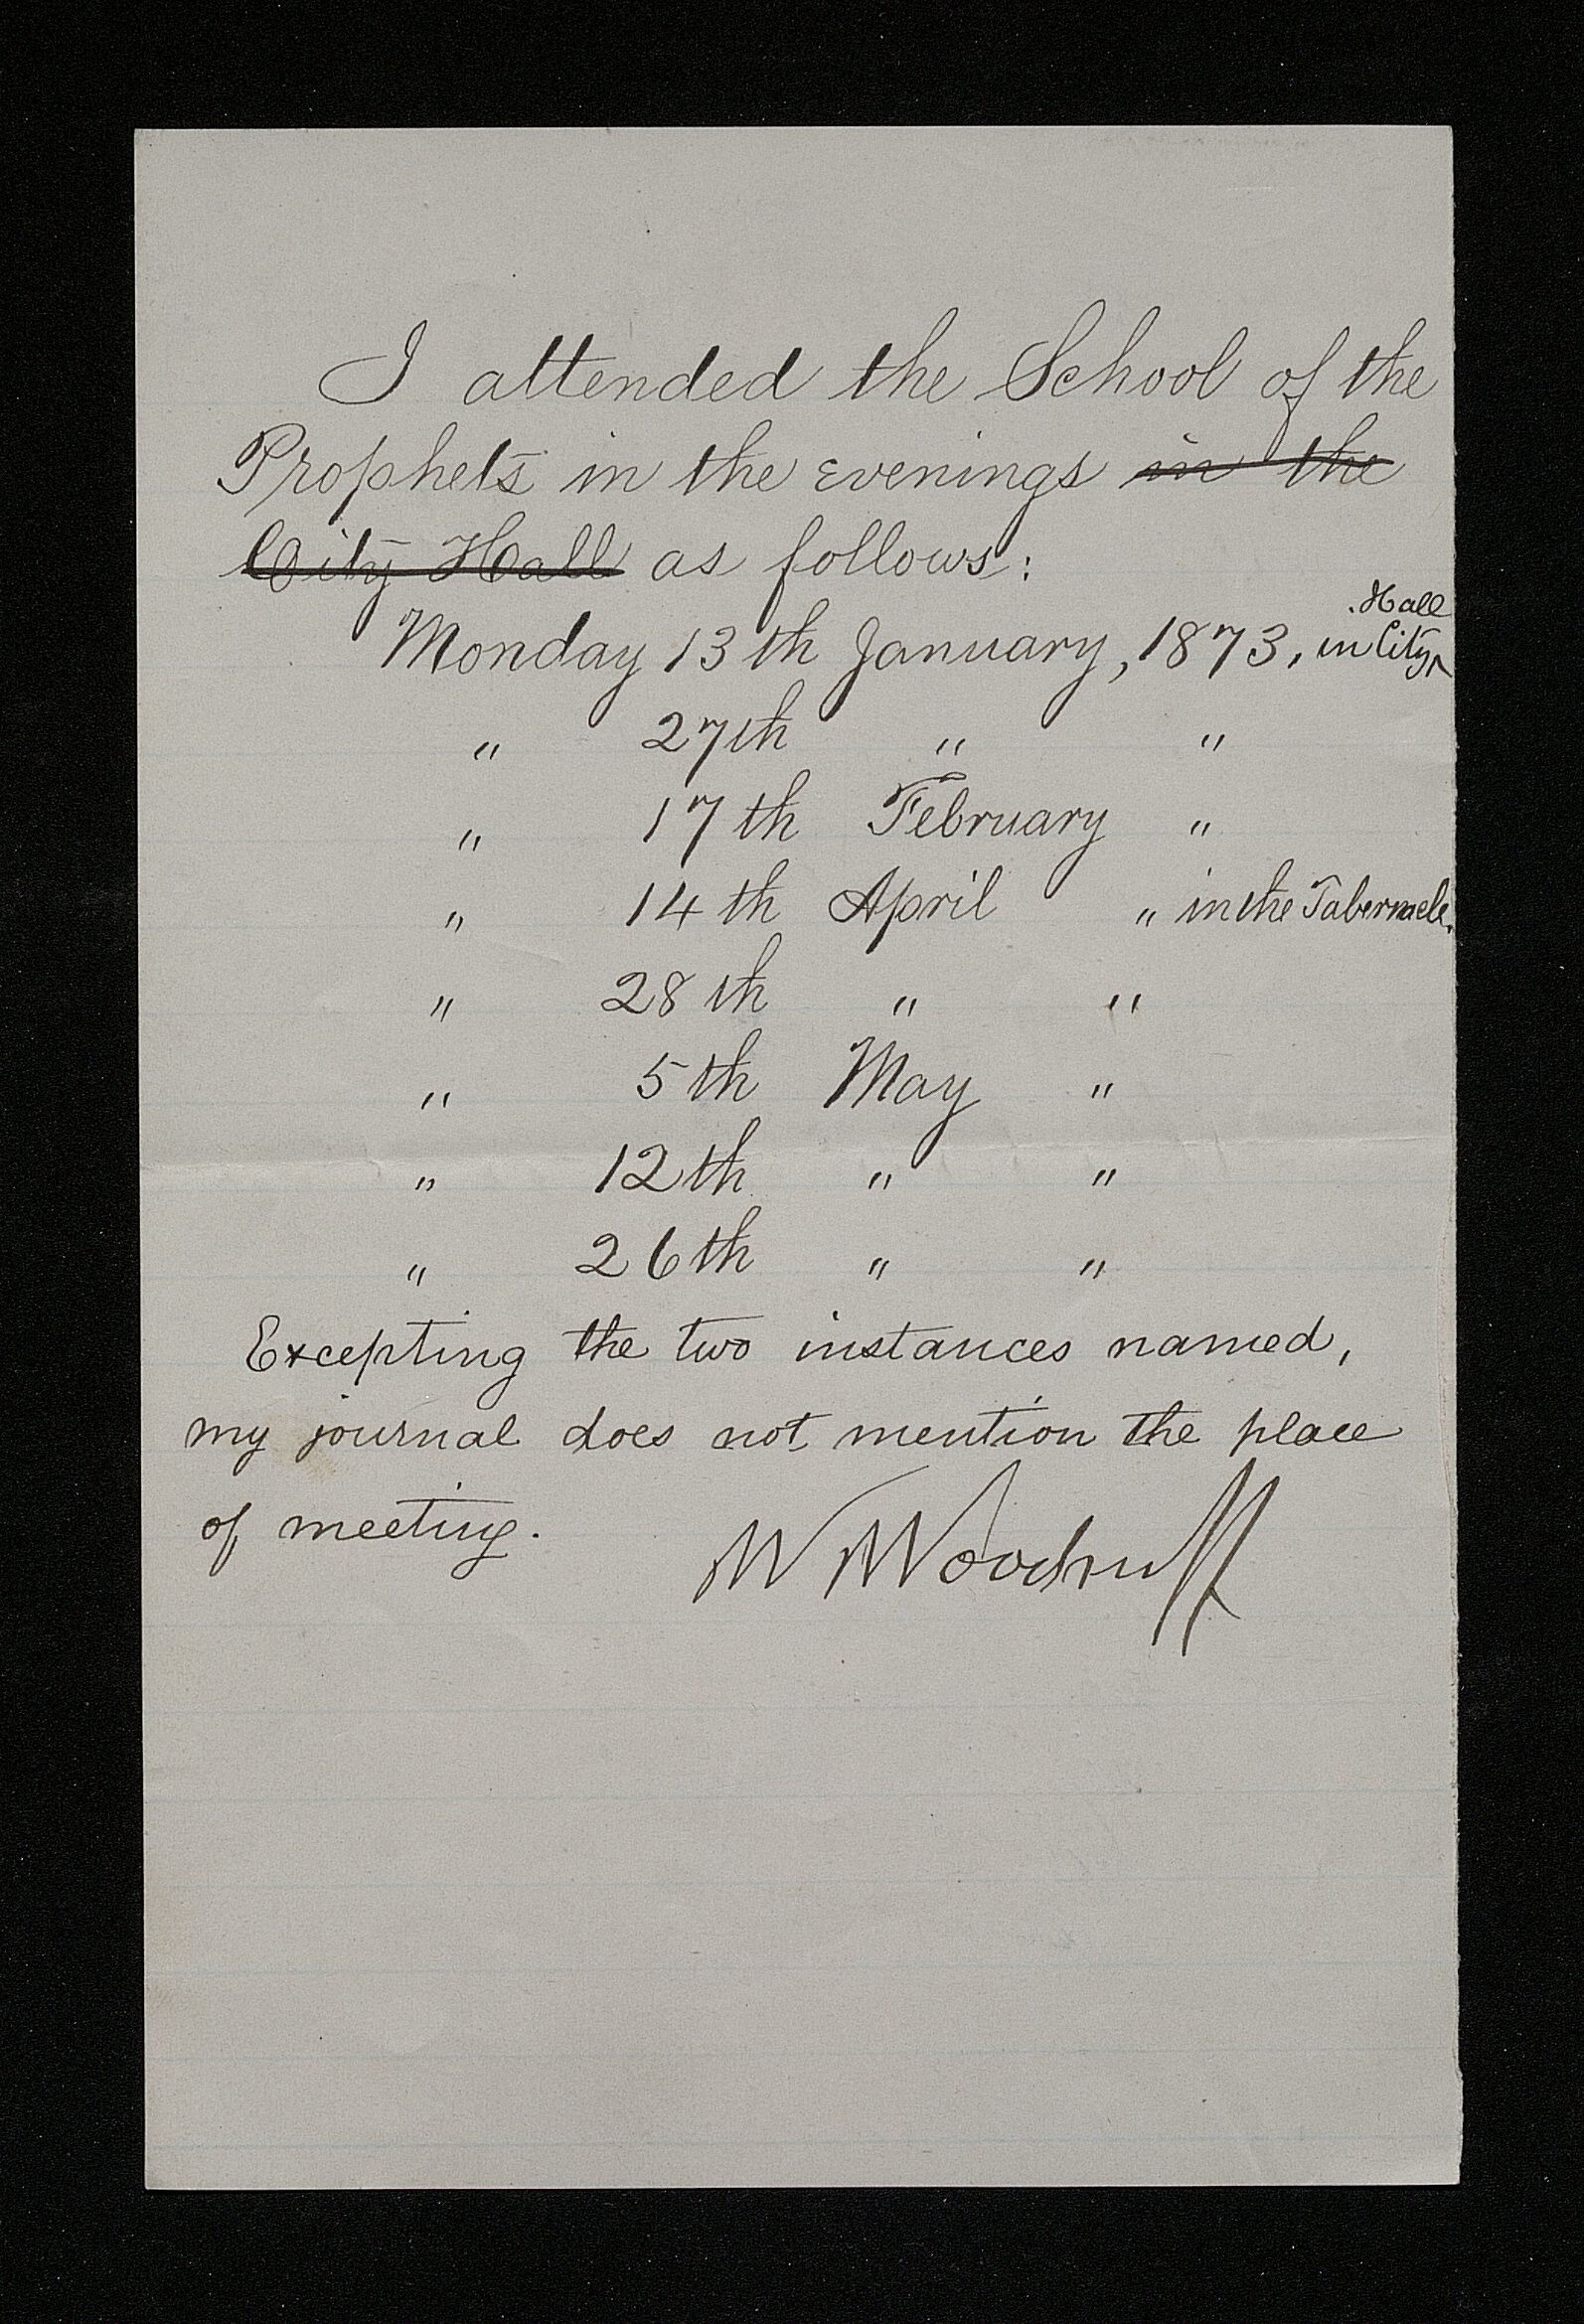 I attended the School of the
Prophets in the evenings in the
City Hall as follows:
Monday 13th January, 1873, in City ^ Hall
" 27th " "
" 17th February "
" 14th April " in the Tabernacle.
" 28th " "
" 5th May "
" 12th " "
" 26th " "
Excepting the two instances named,
my journal does not mention the place
of meeting. W Woodruff